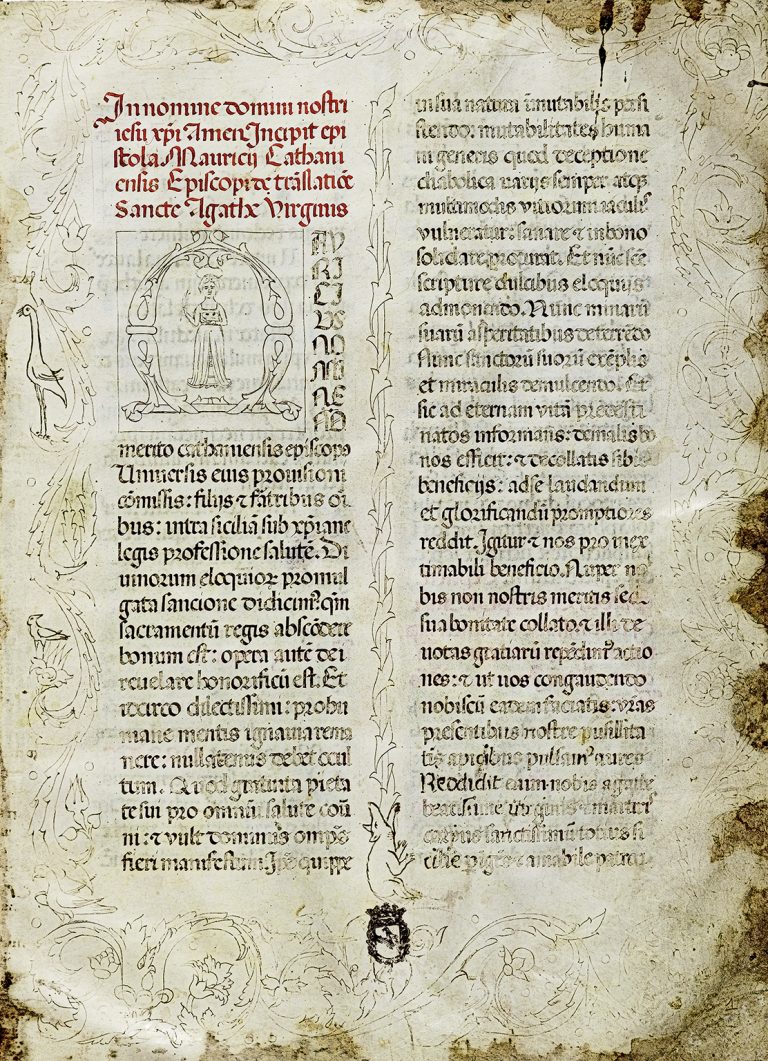 In nomine domini nostri
iesu xp̄i Amen. Incipit epi
stola Mauricij Cathani
ensis Episcopi de trāslatiōe
Sancte Agathe Virginis
MAV
RICI
VS
NO
MI
NE
ND
merito cathaniensis episcopo
Universis eius provisioni
cōmissis: filijs & fratribus oī
bus: intra siciliā sub xp̄iane
legis professione salutē. Di
vinorum eloquior promul
gata sancione didicim9: qm̄
sacramentū regis abscōdere
bonum est: opera autē dei
revelare honorificū est. Et
idcirco dilectissimi: probū
mane mentis ignavia rema
nere: nullatenus debet occul
tum. Quod gratuita pieta
te sui pro omniū salute coīu
ni: & vult dominus omps
fieri manifestum. Ipse quippe
in sua natura inmutabilis persi
stendo: mutabilitates huma
ni generis quod deceptione
diabolica varijs semper atqȝ
multimodis vitiorum iaculis
vulneratur: sanare & in bono
solidare procurat. Et nūc scē
scripture dulcibus eloquijs
admonendo. Nunc minarū
suarū asperitatibus deterrēdo
Nunc sanctorū suorū exēplis
et miraculis demulcendo: sit
sic ad eternam vitā predesti
natos informans: de malis bo
nos efficit: & de collatis sibi
beneficijs: ad se laudandum
et glorificandū promptiores
reddit. Igitur & nos pro inex
timabili beneficio. Nuper no
bis non nostris meritis sed
sua bonitate collato: & illi de
votas gratiarū rependim9 actio
nes: & ut vos congaudendo
nobiscū eadem faciatis: vr̄as
presentibus nostre pusillita
tis apicibus pulsam9 aures
Reddidit enim nobis agathe
beatissime virginis & martiris
corpus sanctissimū totius si
cilie pign9 & amabile patroci